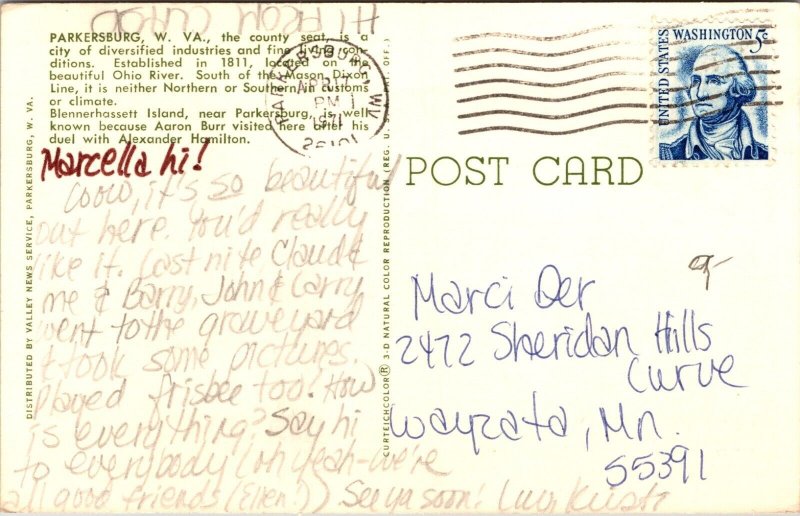 HI FROM
PARKERSBURG, W. VA., the county seat, is a
city of diversified industries and fine living con-
ditions. Established in 1811, located on the
beautiful Ohio River. South of the Mason Dixon
Line, it is neither Northern or Southern in customs
or climate.
Blennerhassett Island, near Parkersburg, is well
known because Aaron Burr visited here after his
duel with Alexander Hamilton.
Marcella hi!
Ooow, it's so beautiful
out here. You'd really
like it. Last nite Claud &
me & Barry, John & Larry
went to the graveyard
& took some pictures.
Played frisbee too! How
is everything? Say hi
to everybody (oh yeah-we're
all good friends (Ellen!)) See ya soon! Luv, Kristi
DISTRIBUTED BY VALLEY NEWS SERVICE, PARKERSBURG, W. VA.
CURTEICHCOLOR® 3-D NATURAL COLOR REPRODUCTION (REG. U. OFF.)
PARKERSBURG, WV
APR 17
PM
1971
26101
UNITED STATES
WASHINGTON 5¢
POST CARD
Marci Oer
2472 Sheridan Hills
Curve
Wayzata, Mn.
55391